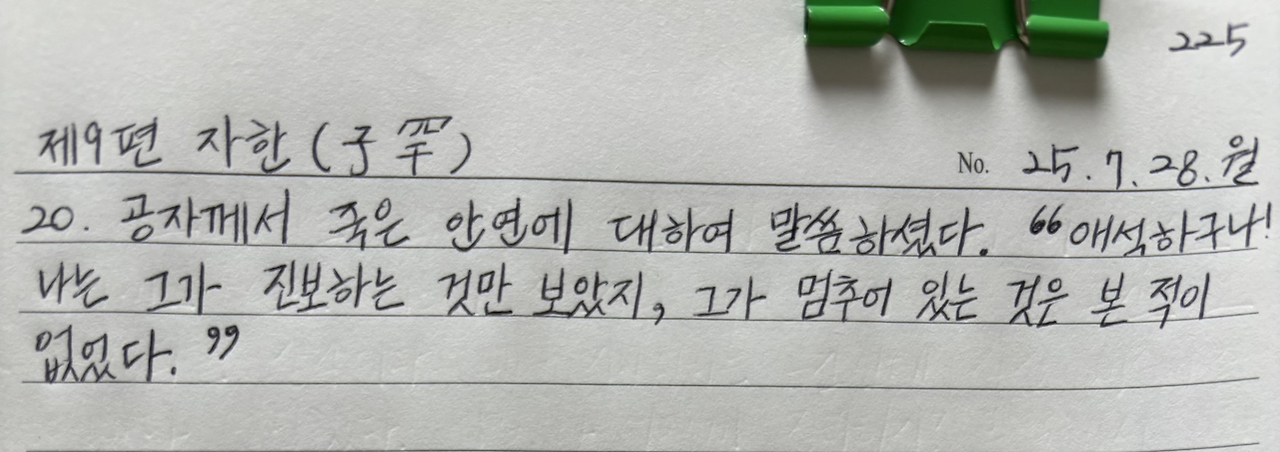 225
제9편 자한(子罕)
No. 25.7.28.월
20. 공자께서 죽은 안연에 대하여 말씀하셨다. “애석하구나!
나는 그가 진보하는 것만 보았지, 그가 멈추어 있는 것은 본 적이
없었다.”